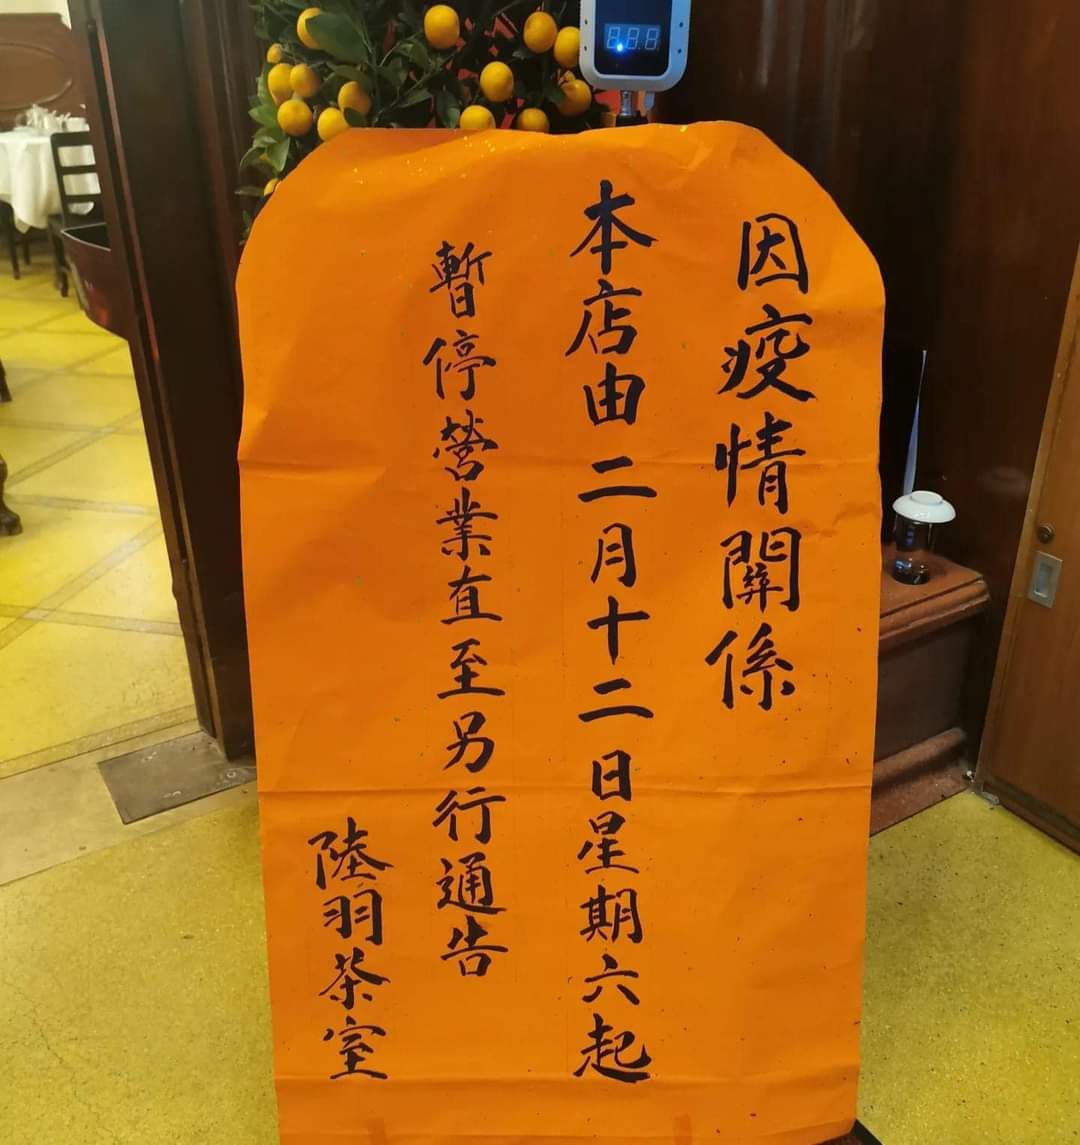 因疫情關係
本店由二月十二日星期六起
暫停營業直至另行通告
陸羽茶室